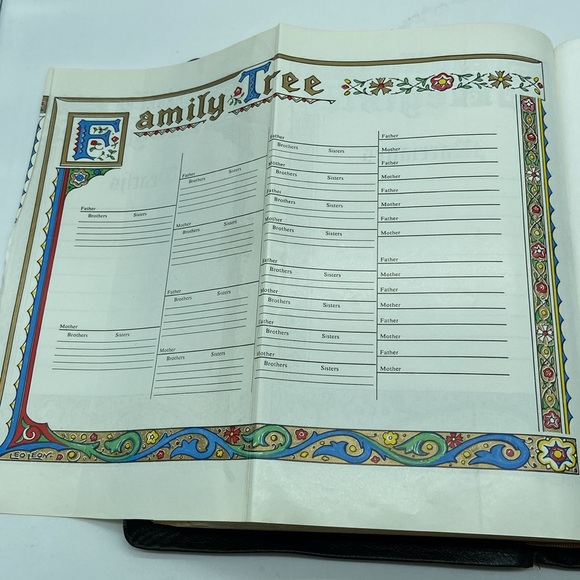 Family Tree
Father
Brothers Sisters
Mother
Brothers Sisters
Father
Brothers Sisters
Mother
Brothers Sisters
Father
Brothers Sisters
Mother
Brothers Sisters
Father
Brothers Sisters
Mother
Brothers Sisters
Father
Brothers Sisters
Mother
Brothers Sisters
Father
Brothers Sisters
Mother
Brothers Sisters
Father
Brothers Sisters
Mother
Brothers Sisters
Father
Mother
Father
Mother
Father
Mother
Father
Mother
Father
Mother
Father
Mother
Father
Mother
Father
Mother